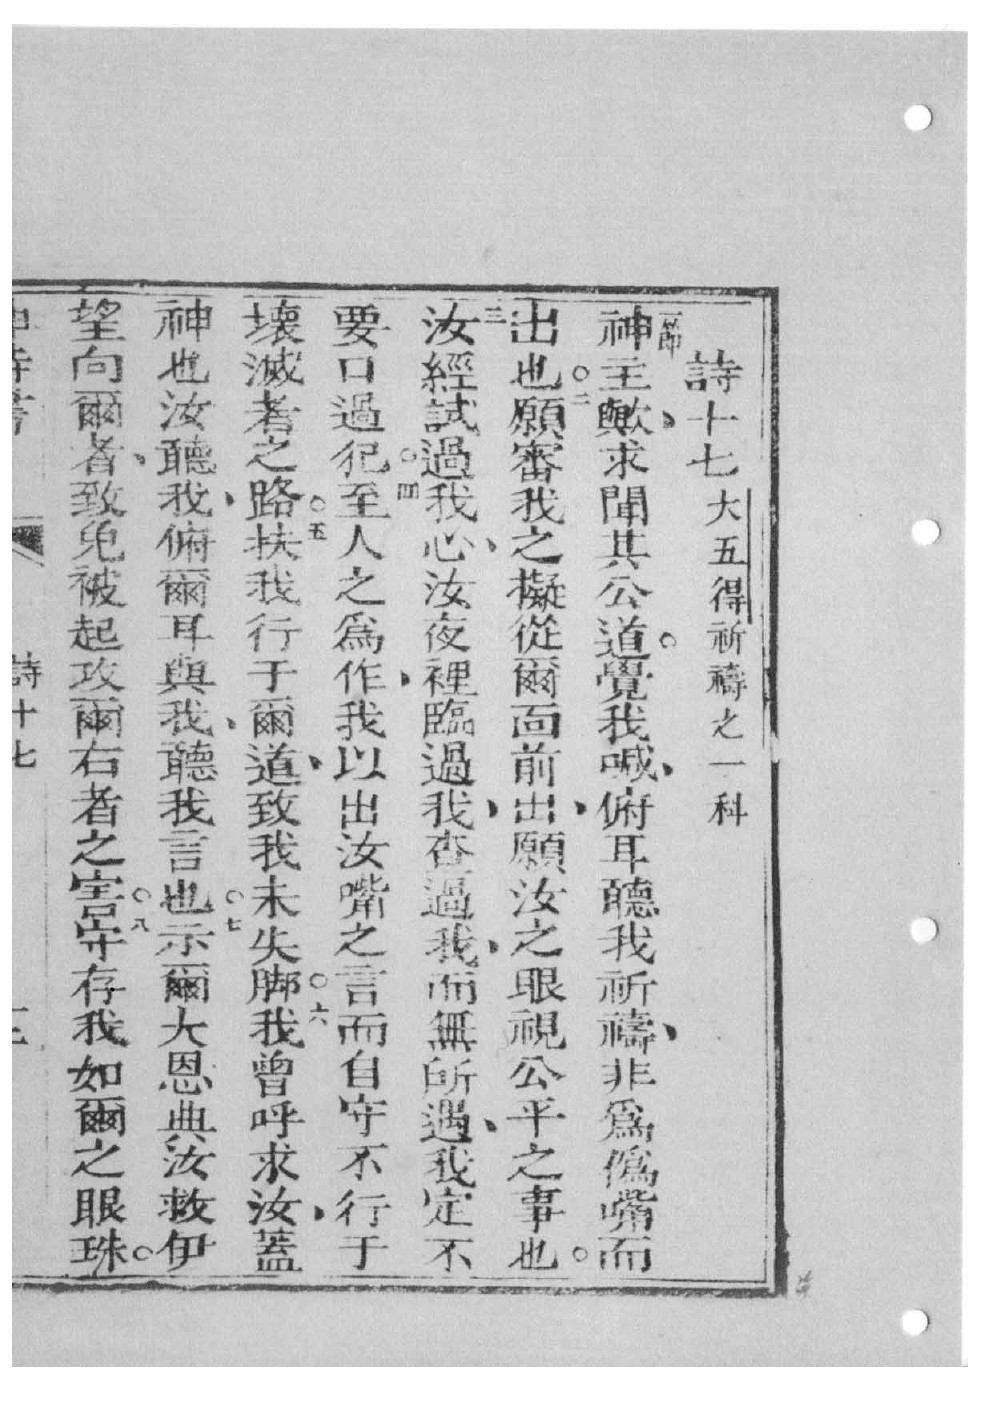 詩十七大五得祈禱之一科
一節神主歟、求聞其公道。覺我喊、俯耳聽我祈禱、非爲僞嘴而
出也。二願審我之擬從爾面前出、願汝之眼視公平之事也。
三汝經試過我心、汝夜裡臨過我、查過我、而無所遇、我定不
要口過犯。四至人之爲作、我以出汝嘴之言而自守不行于
壞滅者之路。五扶我行于爾道、致我未失脚。六我曾呼求汝、蓋
神也汝聽我、俯爾耳與我、聽我言也。七示爾大恩典汝救伊
望向爾者、致免被起攻爾右者之害。八守存我如爾之眼珠。
詩十七